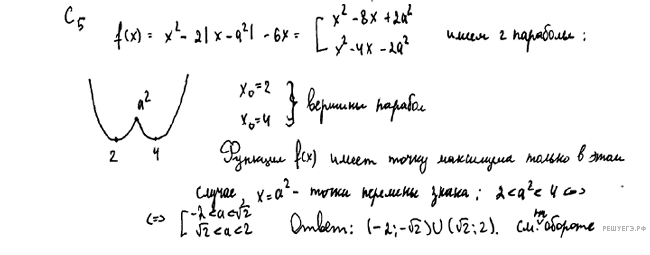 C5
f(x) = x² - 2|x - a²| - 6x = [ x² - 8x + 2a² имеем 2 параболы:
x² - 4x - 2a²
a²
2 4
x₀ = 2
x₀ = 4 } вершины парабол
Функция f(x) имеет точку максимума только в этом
случае, x = a² - точки перемены знака; 2 < a² < 4 <=>
<=> [ -2 < a < √2
√2 < a < 2 Ответ: (-2; -√2) ∪ (√2; 2). см. на обороте
РЕШУЕГЭ.РФ